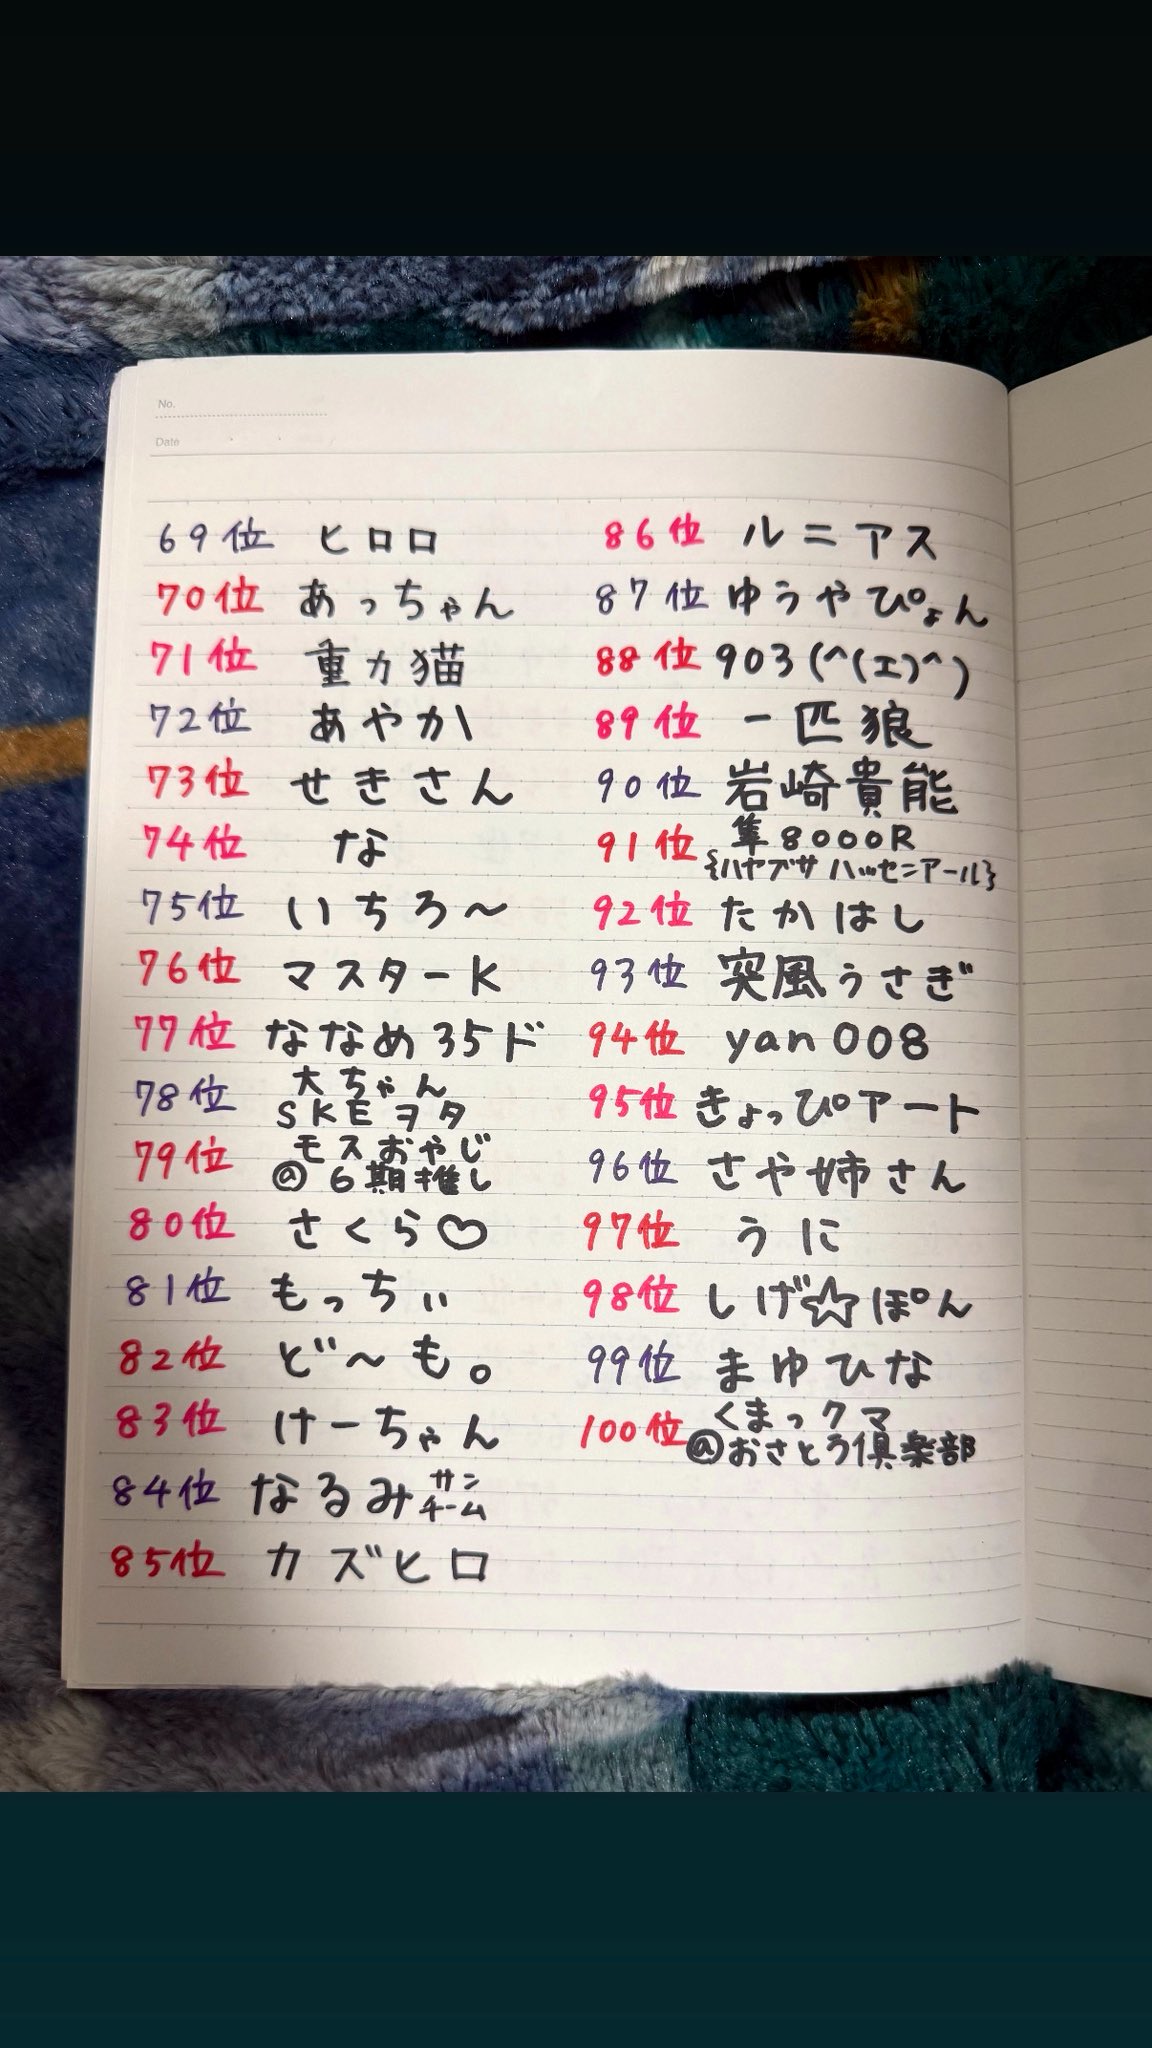 No.
Date
69位 ヒロロ
70位 あっちゃん
71位 重力猫
72位 あやか
73位 せきさん
74位 な
75位 いちろ〜
76位 マスターK
77位 ななめ35ド
78位 大ちゃん
SKEヲタ
79位 モスおやじ
@6期推し
80位 さくら♡
81位 もっちぃ
82位 ど〜も。
83位 けーちゃん
84位 なるみサンチーム
85位 カズヒロ
86位 ルニアス
87位 ゆうやぴょん
88位 903(^(エ)^)
89位 一匹狼
90位 岩崎貴能
91位 隼8000R
{ハヤブサ ハッセンアール}
92位 たかはし
93位 突風うさぎ
94位 yan008
95位 きょっぴアート
96位 さや姉さん
97位 うに
98位 しげ☆ぽん
99位 まゆひな
100位 くまっクマ
@おさとう倶楽部